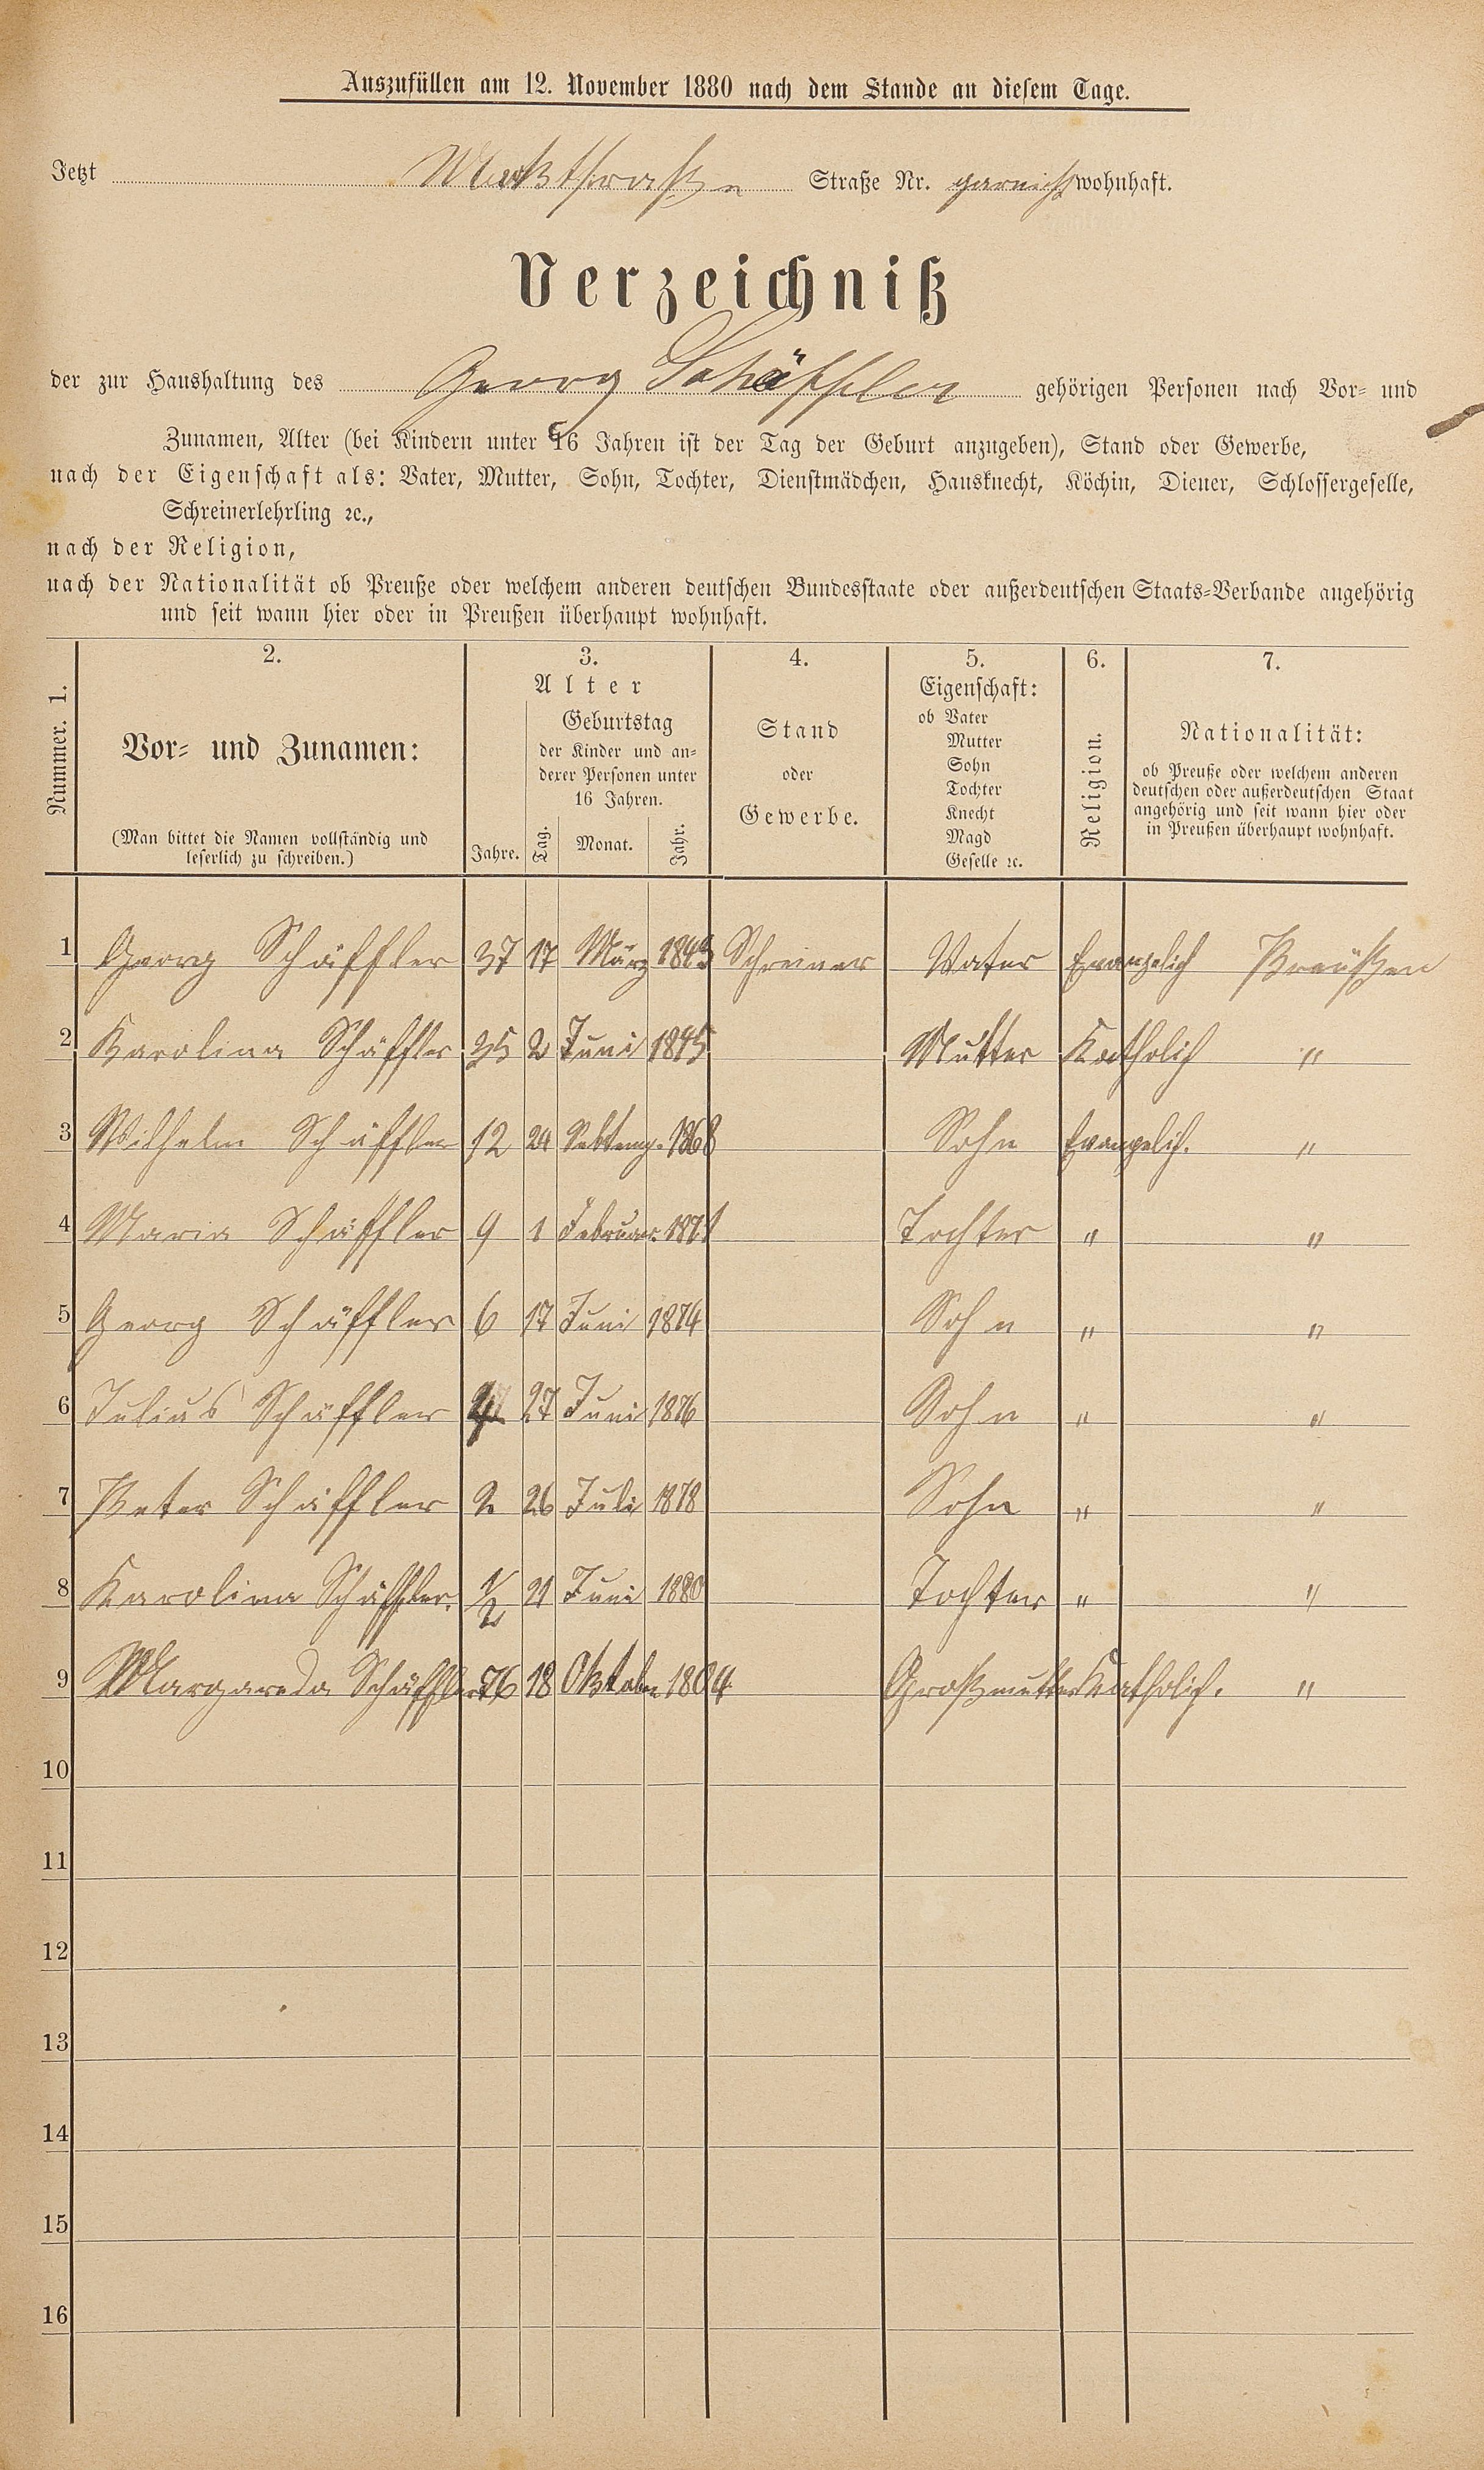 Auszufüllen am 12. November 1880 nach dem Stande an diesem Tage.
Jetzt Marktstraße Straße Nr. garnicht wohnhaft.
Verzeichniß
der zur Haushaltung des Georg Schäffler gehörigen Personen nach Vor- und
Zunamen, Alter (bei Kindern unter 16 Jahren ist der Tag der Geburt anzugeben), Stand oder Gewerbe,
nach der Eigenschaft als: Vater, Mutter, Sohn, Tochter, Dienstmädchen, Hausknecht, Köchin, Diener, Schlossergeselle,
Schreinerlehrling ꝛc.,
nach der Religion,
nach der Nationalität ob Preuße oder welchem anderen deutschen Bundesstaate oder außerdeutschen Staats-Verbande angehörig
und seit wann hier oder in Preußen überhaupt wohnhaft.
Nummer. 1.
2.
Vor- und Zunamen:
(Man bittet die Namen vollständig und
leserlich zu schreiben.)
3.
Alter
Jahre.
Geburtstag
der Kinder und an-
derer Personen unter
16 Jahren.
Tag. Monat. Jahr.
4.
Stand
oder
Gewerbe.
5.
Eigenschaft:
ob Vater
Mutter
Sohn
Tochter
Knecht
Magd
Geselle ꝛc.
6.
Religion.
7.
Nationalität:
ob Preuße oder welchem anderen
deutschen oder außerdeutschen Staat
angehörig und seit wann hier oder
in Preußen überhaupt wohnhaft.
1 Georg Schäffler 37 17 März 1843 Schreiner Vater Evangelich Preußen
2 Karolina Schäffler 35 2 Juni 1845 Mutter Katholich "
3 Wilhelm Schäffler 12 24 Sebtemp. 1868 Sohn Evangelich. "
4 Maria Schäffler 9 1 Februar. 1871 Tochter " "
5 Georg Schäffler 6 17 Juni 1874 Sohn " "
6 Julius Schäffler 4 27 Juni 1876 Sohn " "
7 Peter Schäffler 2 26 Juli 1878 Sohn " "
8 Karolina Schäffler. 1/2 21 Juni 1880 Tochter " "
9 Margareda Schäffler 76 18 Oktober 1804 Großmutter Katholich. "
10
11
12
13
14
15
16